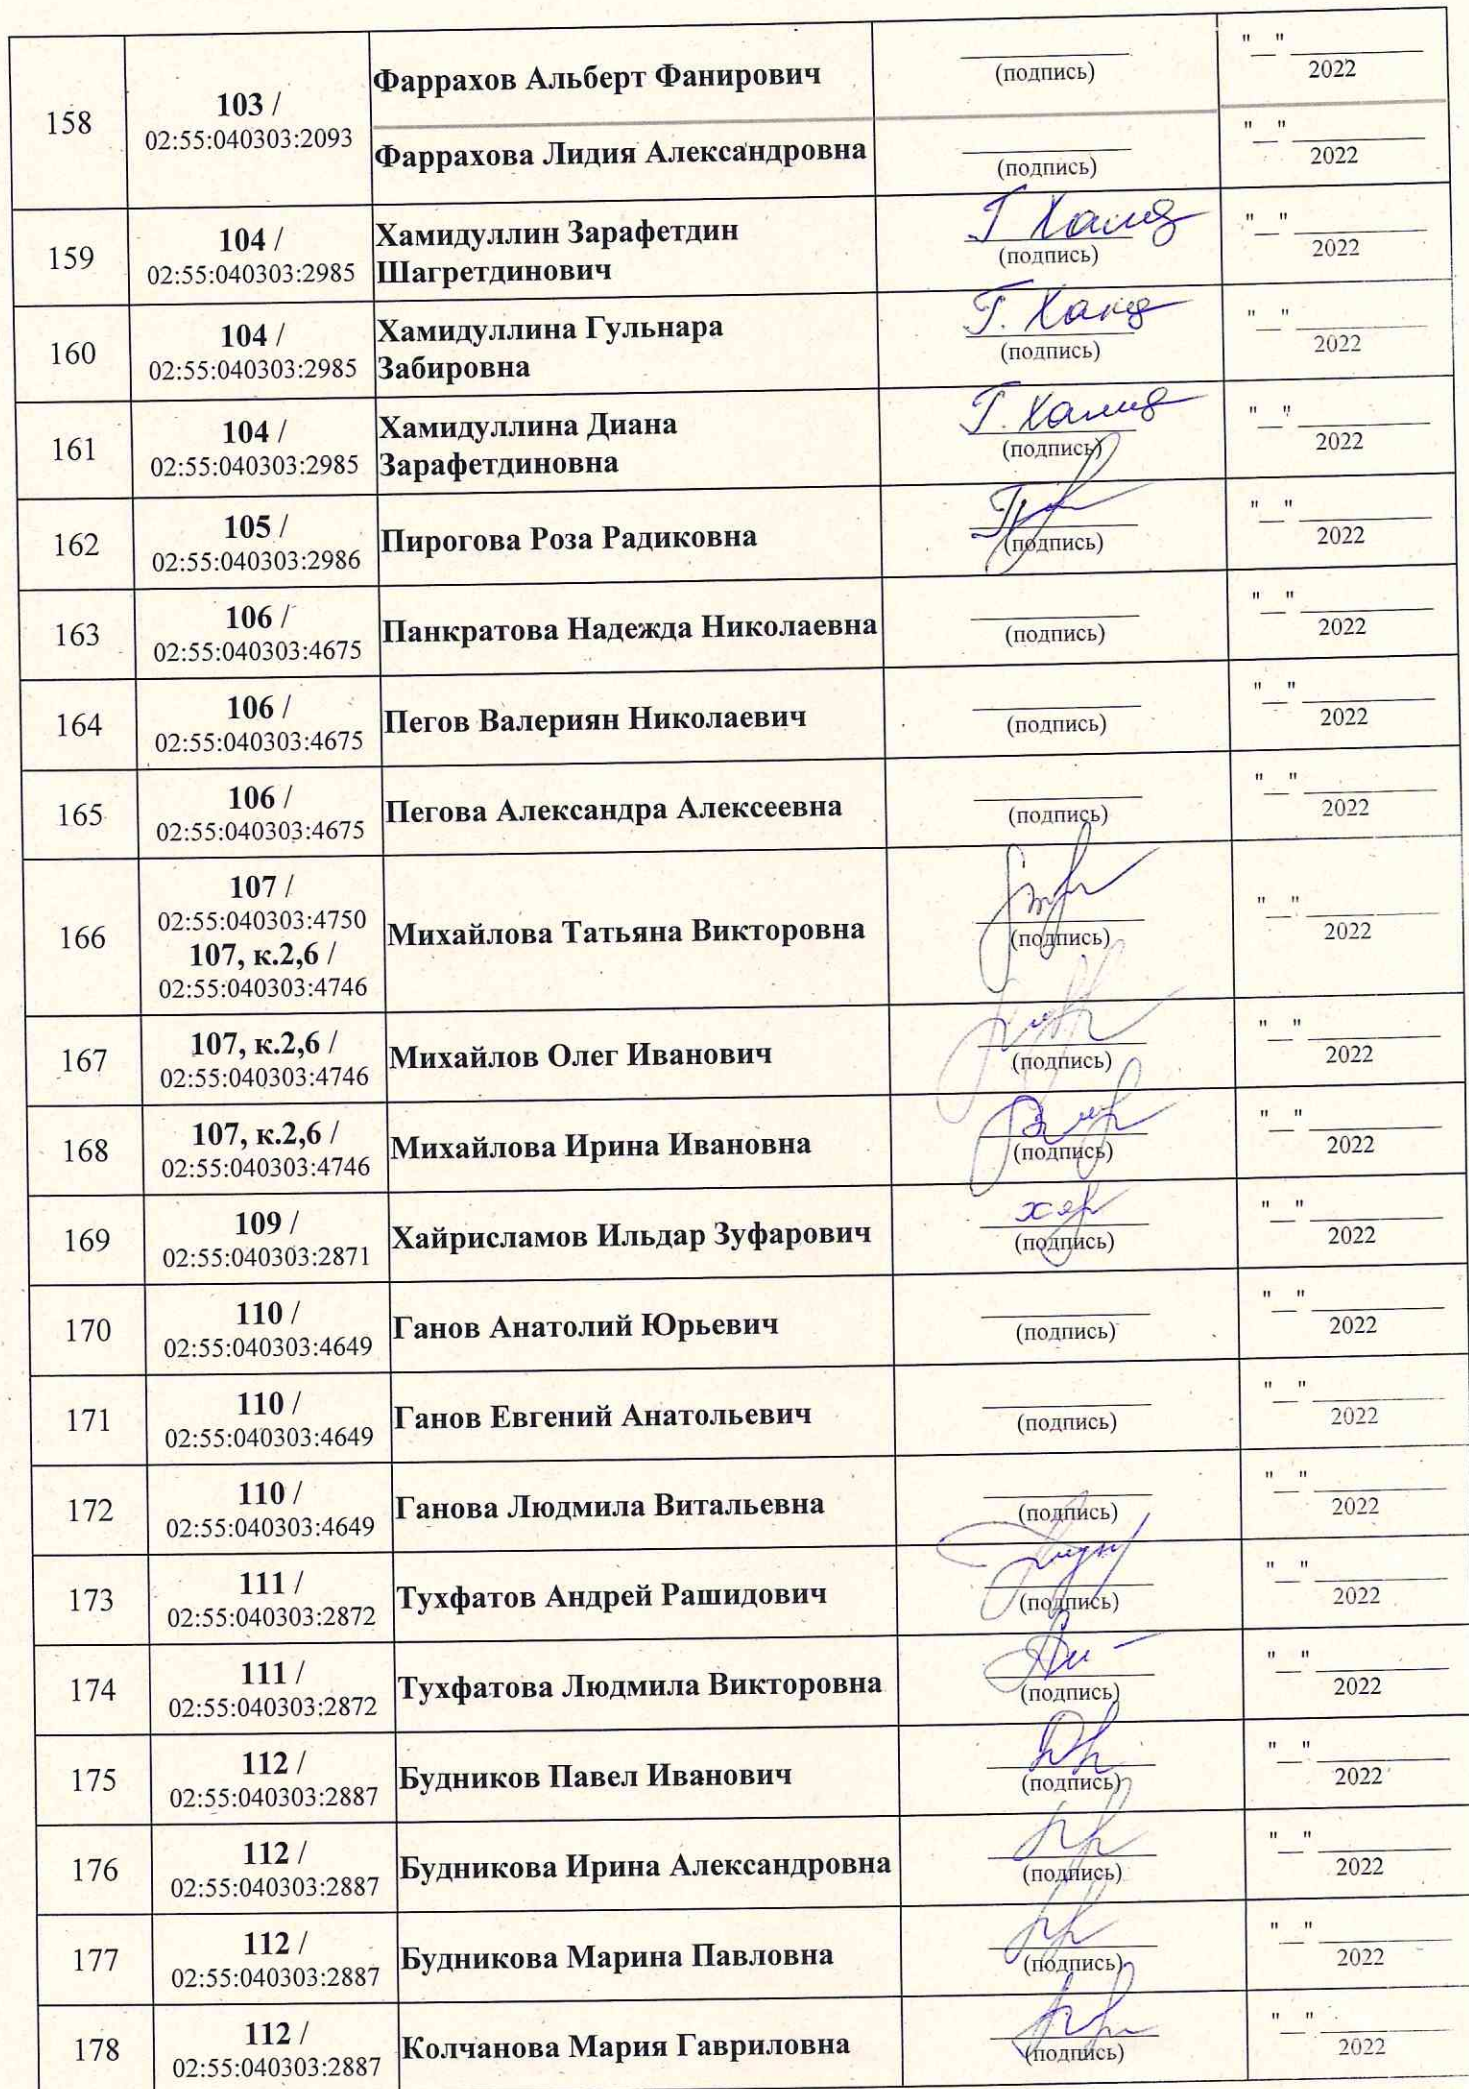 158
103 /
02:55:040303:2093
Фаррахов Альберт Фанирович
(подпись)
"__" ________ 2022
Фаррахова Лидия Александровна
(подпись)
"__" ________ 2022
159
104 /
02:55:040303:2985
Хамидуллин Зарафетдин
Шагретдинович
Г Хамид
(подпись)
"__" ________ 2022
160
104 /
02:55:040303:2985
Хамидуллина Гульнара
Забировна
Г. Хамид
(подпись)
"__" ________ 2022
161
104 /
02:55:040303:2985
Хамидуллина Диана
Зарафетдиновна
Г. Хамид
(подпись)
"__" ________ 2022
162
105 /
02:55:040303:2986
Пирогова Роза Радиковна
(подпись)
"__" ________ 2022
163
106 /
02:55:040303:4675
Панкратова Надежда Николаевна
(подпись)
"__" ________ 2022
164
106 /
02:55:040303:4675
Пегов Валериян Николаевич
(подпись)
"__" ________ 2022
165
106 /
02:55:040303:4675
Пегова Александра Алексеевна
(подпись)
"__" ________ 2022
166
107 /
02:55:040303:4750
107, к.2,6 /
02:55:040303:4746
Михайлова Татьяна Викторовна
(подпись)
"__" ________ 2022
167
107, к.2,6 /
02:55:040303:4746
Михайлов Олег Иванович
(подпись)
"__" ________ 2022
168
107, к.2,6 /
02:55:040303:4746
Михайлова Ирина Ивановна
(подпись)
"__" ________ 2022
169
109 /
02:55:040303:2871
Хайрисламов Ильдар Зуфарович
(подпись)
"__" ________ 2022
170
110 /
02:55:040303:4649
Ганов Анатолий Юрьевич
(подпись)
"__" ________ 2022
171
110 /
02:55:040303:4649
Ганов Евгений Анатольевич
(подпись)
"__" ________ 2022
172
110 /
02:55:040303:4649
Ганова Людмила Витальевна
(подпись)
"__" ________ 2022
173
111 /
02:55:040303:2872
Тухфатов Андрей Рашидович
(подпись)
"__" ________ 2022
174
111 /
02:55:040303:2872
Тухфатова Людмила Викторовна
(подпись)
"__" ________ 2022
175
112 /
02:55:040303:2887
Будников Павел Иванович
(подпись)
"__" ________ 2022
176
112 /
02:55:040303:2887
Будникова Ирина Александровна
(подпись)
"__" ________ 2022
177
112 /
02:55:040303:2887
Будникова Марина Павловна
(подпись)
"__" ________ 2022
178
112 /
02:55:040303:2887
Колчанова Мария Гавриловна
(подпись)
"__" ________ 2022